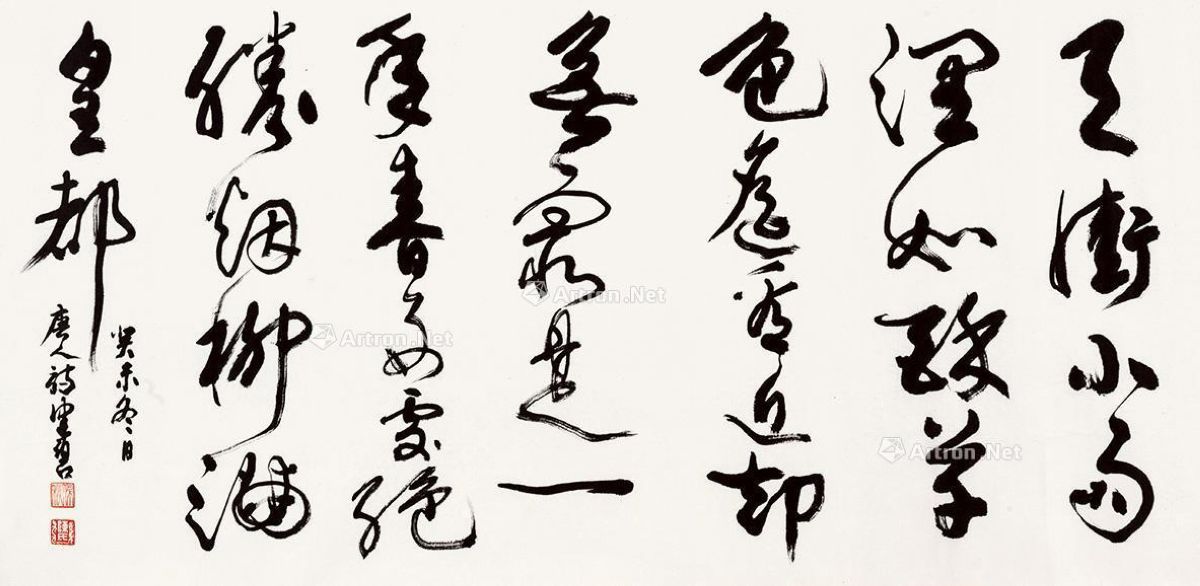 天街小雨
潤如酥草
色遙看近却
無最是一
年春好處絕
勝烟柳滿
皇都
癸未冬日
唐人詩
Artron.Net
Artron.Net
Artron.Net